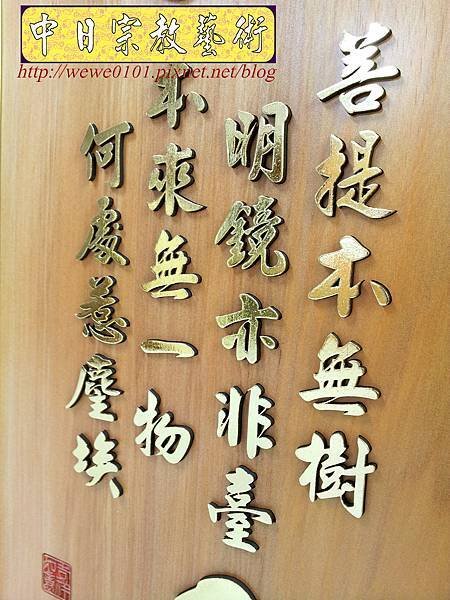 中日宗教藝術
http://wewe0101.pixnet.net/blog
菩提本無樹
明鏡亦非臺
本來無一物
何處惹塵埃